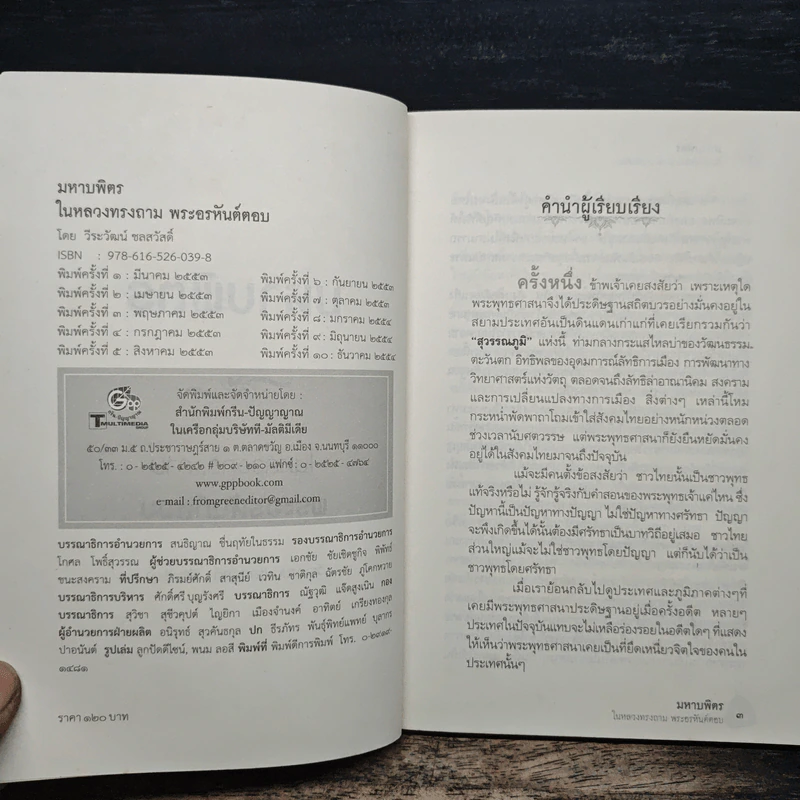 มหาบพิตร
ในหลวงทรงถาม พระอรหันต์ตอบ
โดย วีระวัฒน์ ชลสวัสดิ์
ISBN : 978-616-526-039-8
พิมพ์ครั้งที่ ๑ : มีนาคม ๒๕๕๓
พิมพ์ครั้งที่ ๒ : เมษายน ๒๕๕๓
พิมพ์ครั้งที่ ๓ : พฤษภาคม ๒๕๕๓
พิมพ์ครั้งที่ ๔ : กรกฎาคม ๒๕๕๓
พิมพ์ครั้งที่ ๕ : สิงหาคม ๒๕๕๓
พิมพ์ครั้งที่ ๖ : กันยายน ๒๕๕๓
พิมพ์ครั้งที่ ๗ : ตุลาคม ๒๕๕๓
พิมพ์ครั้งที่ ๘ : มกราคม ๒๕๕๔
พิมพ์ครั้งที่ ๙ : มิถุนายน ๒๕๕๔
พิมพ์ครั้งที่ ๑๐ : ธันวาคม ๒๕๕๔
Gpp
กรีน-ปัญญาญาณ
T MULTIMEDIA
จัดพิมพ์และจัดจำหน่ายโดย :
สำนักพิมพ์กรีน-ปัญญาญาณ
ในเครือกลุ่มบริษัทที-มัลติมีเดีย
๕๐/๓๓ ม.๕ ถ.ประชาราษฎร์สาย ๑ ต.ตลาดขวัญ อ.เมือง จ.นนทบุรี ๑๑๐๐๐
โทร. : ๐-๒๕๒๕-๔๒๔๒ # ๒๐๙-๒๑๐ แฟกซ์ : ๐-๒๕๒๕-๔๗๖๔
www.gppbook.com
e-mail : fromgreeneditor@gmail.com
บรรณาธิการอำนวยการ สนธิญาณ ชื่นฤทัยในธรรม รองบรรณาธิการอำนวยการ
โกศล โพธิ์สุวรรณ ผู้ช่วยบรรณาธิการอำนวยการ เอกชัย ชัยเชิดชูกิจ พิพัทธ์
ชนะสงคราม ที่ปรึกษา ภิรมย์ศักดิ์ สาสุนีย์ เวทิน ชาติกุล ฉัตรชัย ภู่โคกหวาย
บรรณาธิการบริหาร ศักดิ์ศรี บุญรังศรี บรรณาธิการ ณัฐวุฒิ แจ๊สสูงเนิน กอง
บรรณาธิการ สุวิชา สุชีวคุปต์ ใญยิกา เมืองจำนงค์ อาทิตย์ เกรียงทองกุล
ผู้อำนวยการฝ่ายผลิต อนิรุทธ์ สุวคันธกุล ปก ธีรภัทร พันธุ์พิทย์แพทย์ บุลากร
ปาอนันต์ รูปเล่ม ลูกปัดดีไซน์, พนม ลอสี พิมพ์ที่ พิมพ์ดีการพิมพ์ โทร. ๐-๒๙๑๙-
๑๔๘๑
ราคา ๑๒๐ บาท
คำนำผู้เรียบเรียง
ครั้งหนึ่ง ข้าพเจ้าเคยสงสัยว่า เพราะเหตุใด
พระพุทธศาสนาจึงได้ประดิษฐานสถิตบวรอย่างมั่นคงอยู่ใน
สยามประเทศอันเป็นดินแดนเก่าแก่ที่เคยเรียกรวมกันว่า
“สุวรรณภูมิ” แห่งนี้ ท่ามกลางกระแสไหลบ่าของวัฒนธรรม
ตะวันตก อิทธิพลของอุดมการณ์ลัทธิการเมือง การพัฒนาทาง
วิทยาศาสตร์แห่งวัตถุ ตลอดจนถึงลัทธิล่าอาณานิคม สงคราม
และการเปลี่ยนแปลงทางการเมือง สิ่งต่างๆ เหล่านี้โหม
กระหน่ำพัดพาถาโถมเข้าใส่สังคมไทยอย่างหนักหน่วงตลอด
ช่วงเวลานับศตวรรษ แต่พระพุทธศาสนาก็ยังยืนหยัดมั่นคง
อยู่ได้ในสังคมไทยมาจนถึงปัจจุบัน
แม้จะมีคนตั้งข้อสงสัยว่า ชาวไทยนั้นเป็นชาวพุทธ
แท้จริงหรือไม่ รู้จักรู้จริงกับคำสอนของพระพุทธเจ้าแค่ไหน ซึ่ง
ปัญหานี้เป็นปัญหาทางปัญญา ไม่ใช่ปัญหาทางศรัทธา ปัญญา
จะพึงเกิดขึ้นได้นั้นต้องมีศรัทธาเป็นบาทวิถีอยู่เสมอ ชาวไทย
ส่วนใหญ่แม้จะไม่ใช่ชาวพุทธโดยปัญญา แต่ก็นับได้ว่าเป็น
ชาวพุทธโดยศรัทธา
เมื่อเราย้อนกลับไปดูประเทศและภูมิภาคต่างๆที่
เคยมีพระพุทธศาสนาประดิษฐานอยู่เมื่อครั้งอดีต หลายๆ
ประเทศในปัจจุบันแทบจะไม่เหลือร่องรอยในอดีตใดๆ ที่แสดง
ให้เห็นว่าพระพุทธศาสนาเคยเป็นที่ยึดเหนี่ยวจิตใจของคนใน
ประเทศนั้นๆ
มหาบพิตร
ในหลวงทรงถาม พระอรหันต์ตอบ ๓